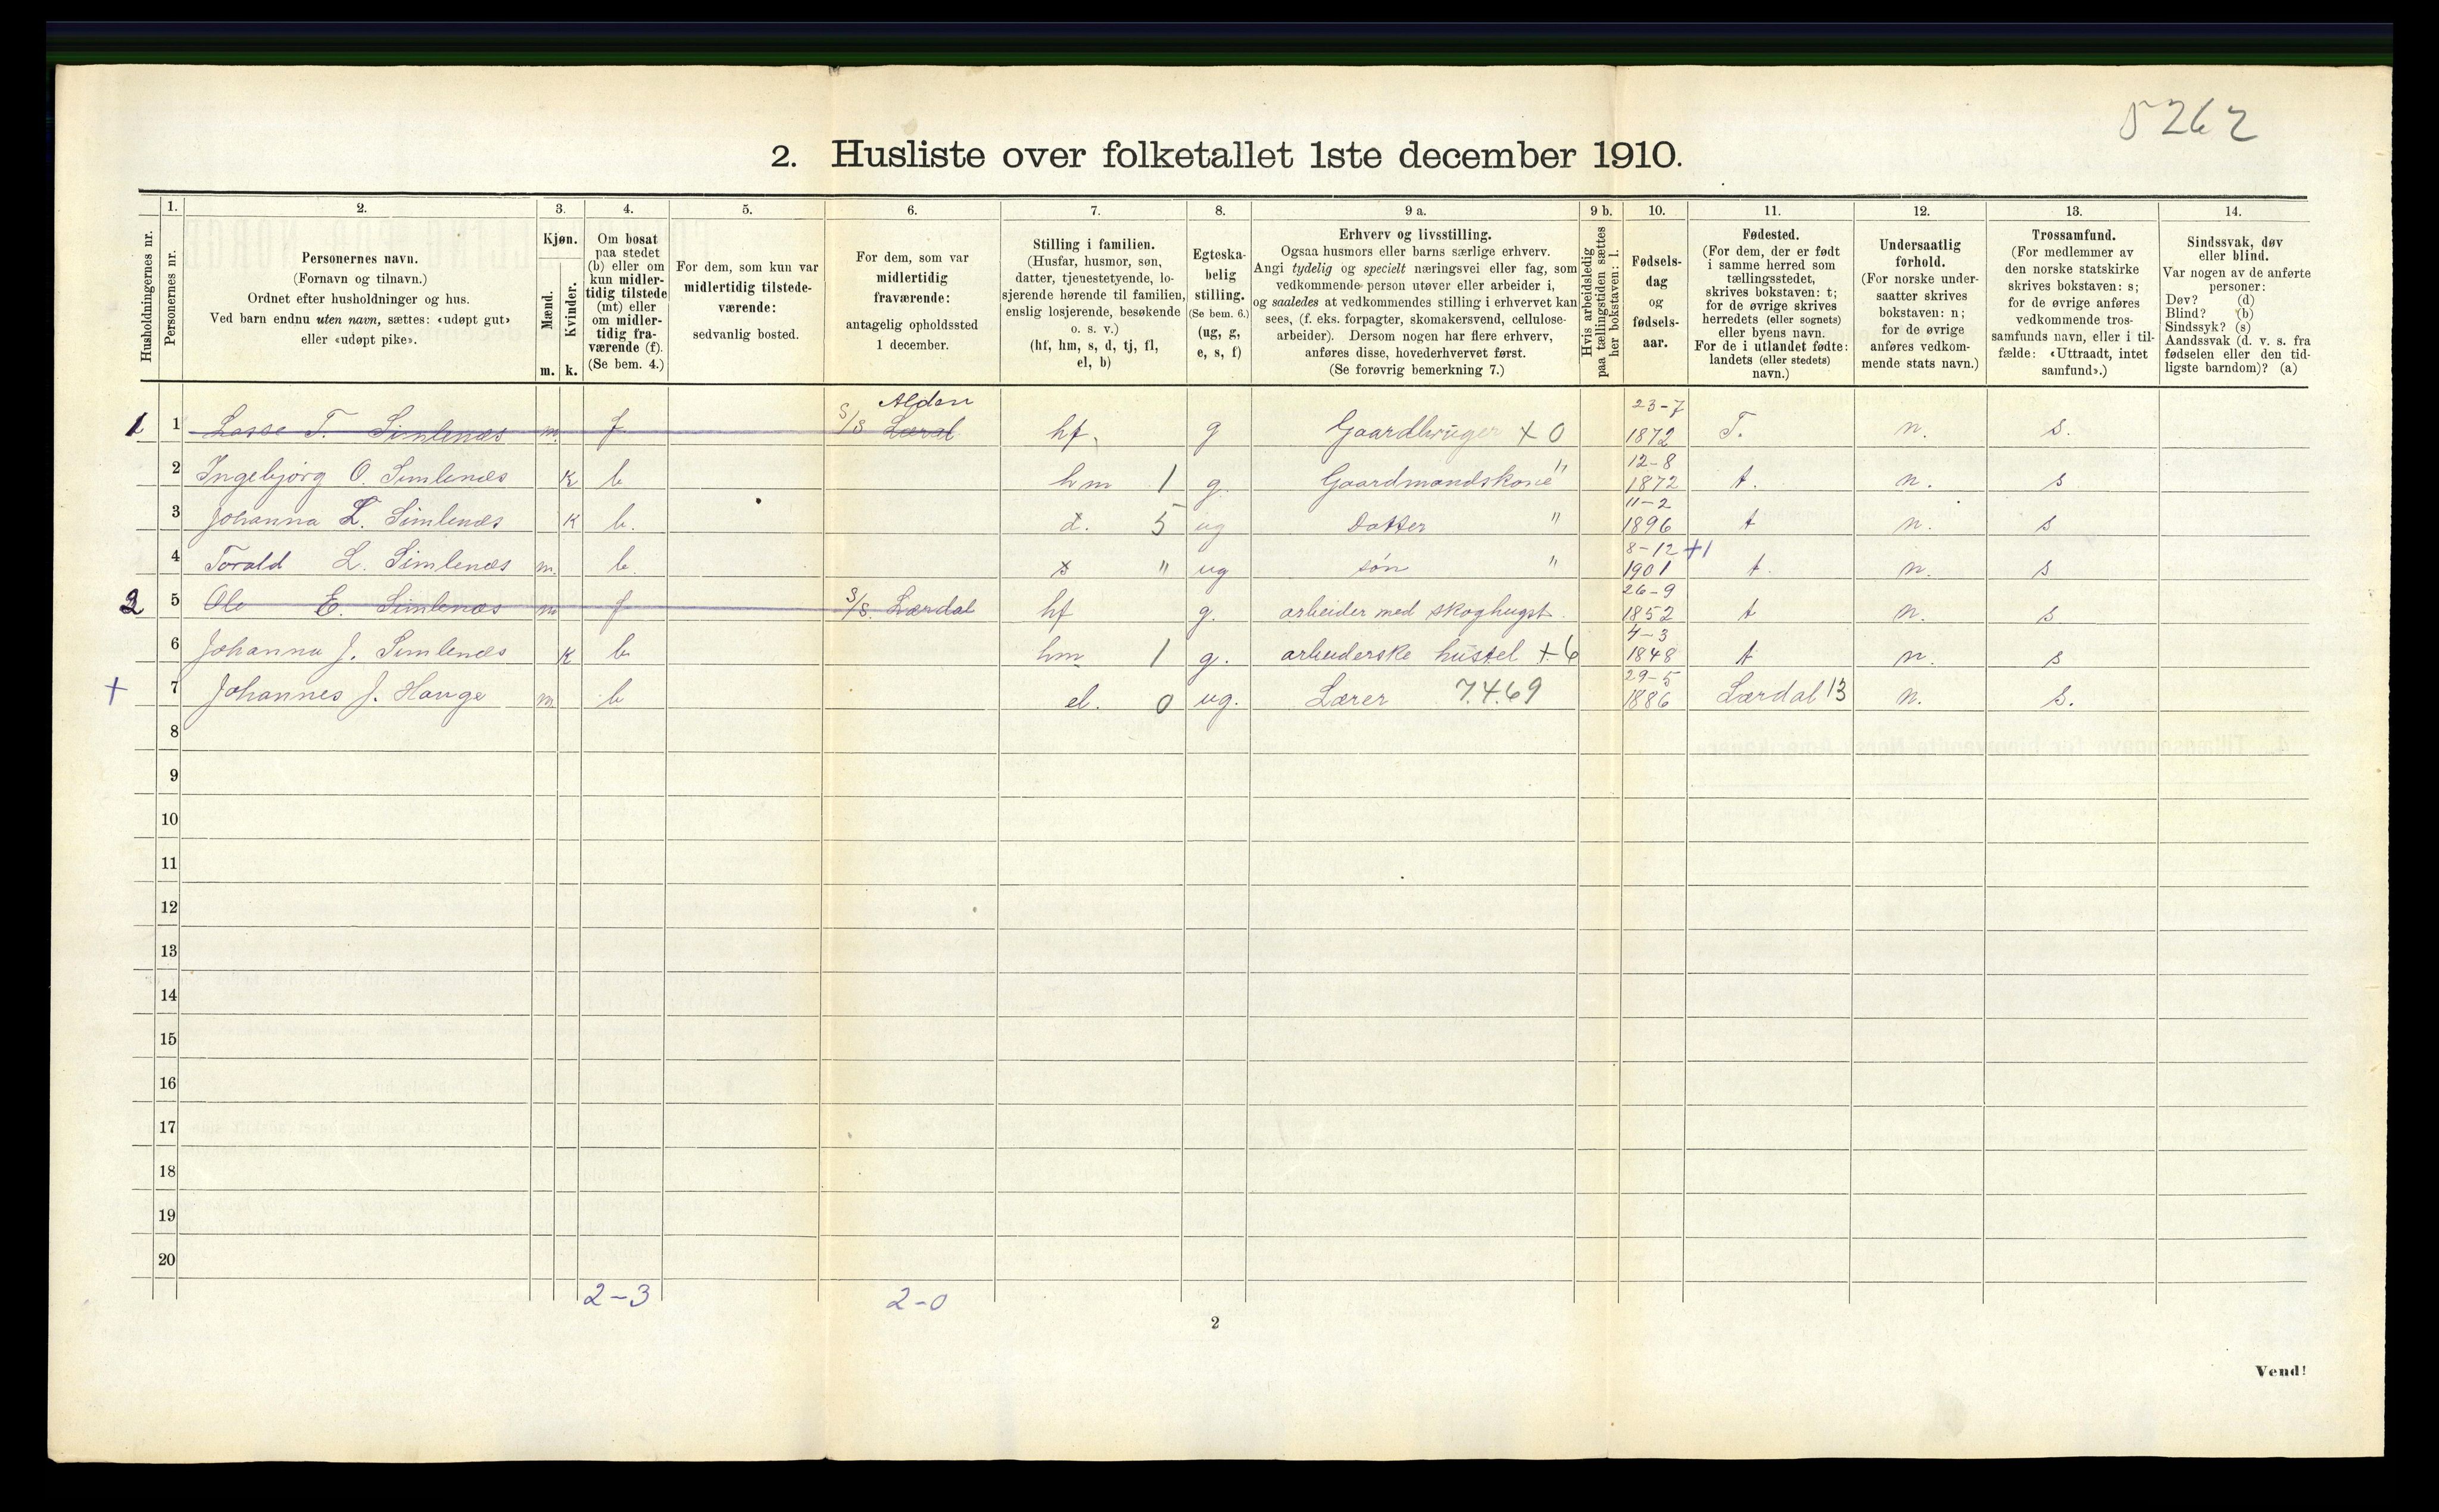 5262
2. Husliste over folketallet 1ste december 1910.
Husholdningernes nr.
1.
Personernes nr.
2.
Personernes navn.
(Fornavn og tilnavn.)
Ordnet efter husholdninger og hus.
Ved barn endnu uten navn, sættes: «udøpt gut»
eller «udøpt pike».
3.
Kjøn.
Mænd.
Kvinder.
m.
k.
4.
Om bosat
paa stedet
(b) eller om
kun midler-
tidig tilstede
(mt) eller
om midler-
tidig fra-
værende (f).
(Se bem. 4.)
5.
For dem, som kun var
midlertidig tilstede-
værende:
sedvanlig bosted.
6.
For dem, som var
midlertidig
fraværende:
antagelig opholdssted
1 december.
7.
Stilling i familien.
(Husfar, husmor, søn,
datter, tjenestetyende, lo-
sjerende hørende til familien,
enslig losjerende, besøkende
o. s. v.)
(hf, hm, s, d, tj, fl,
el, b)
8.
Egteska-
belig
stilling.
(Se bem. 6.)
(ug, g,
e, s, f)
9 a.
Erhverv og livsstilling.
Ogsaa husmors eller barns særlige erhverv.
Angi tydelig og specielt næringsvei eller fag, som
vedkommende person utøver eller arbeider i,
og saaledes at vedkommendes stilling i erhvervet kan
sees, (f. eks. forpagter, skomakersvend, cellulose-
arbeider). Dersom nogen har flere erhverv,
anføres disse, hovederhvervet først.
(Se forøvrig bemerkning 7.)
9 b.
Hvis arbeidsledig
paa tællingstiden sættes
her bokstaven: l.
10.
Fødsels-
dag
og
fødsels-
aar.
11.
Fødested.
(For dem, der er født
i samme herred som
tællingsstedet,
skrives bokstaven: t;
for de øvrige skrives
herredets (eller sognets)
eller byens navn.
For de i utlandet fødte:
landets (eller stedets)
navn.)
12.
Undersaatlig
forhold.
(For norske under-
saatter skrives
bokstaven: n;
for de øvrige
anføres vedkom-
mende stats navn.)
13.
Trossamfund.
(For medlemmer av
den norske statskirke
skrives bokstaven: s;
for de øvrige anføres
vedkommende tros-
samfunds navn, eller i til-
fælde: «Uttraadt, intet
samfund».)
14.
Sindssvak, døv
eller blind.
Var nogen av de anførte
personer:
Døv? (d)
Blind? (b)
Sindssyk? (s)
Aandssvak (d. v. s. fra
fødselen eller den tid-
ligste barndom)? (a)
1 1 Lasse T. Simlenæs m. f S/S Alden hf. g Gaardbruger x 0 23-7 1872 T. n. s.
2 Ingebjørg O. Simlenæs K b hm 1 g. Gaardmandskone " 12-8 1872 t. n. s
3 Johanna L. Simlenæs K b. d. 5 ug Datter " 11-2 1896 t n. s
4 Torald L. Simlenæs m. b s " ug søn " 8-12 +1 1901 t. n. s
2 5 Ole E. Simlenæs m f S/S. Lærdal hf g. arbeider med skoghugst. 26-9 1852 t n. s
6 Johanna J. Simlenæs K b hm 1 g. arbeiderske hustel + 6 4-3 1848 t n. s
+ 7 Johannes J. Hauge m b el. 0 ug. Lærer 7.4.69 29-5 1886 Lærdal 13 n. s.
8
9
10
11
12
13
14
15
16
17
18
19
20
2-3
2-0
2
Vend!